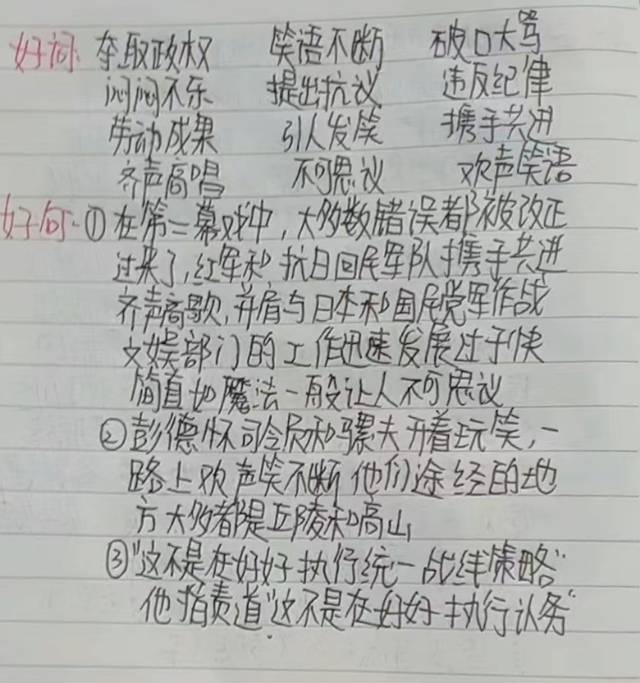 好词: 夺取政权 笑语不断 破口大骂
闷闷不乐 提出抗议 违反纪律
劳动成果 引人发笑 携手共进
齐声高唱 不可思议 欢声笑语
好句: ①在第二幕戏中,大多数错误都被改正
过来了,红军和抗日回民军队携手共进
齐声高歌,并肩与日本和国民党军作战
文娱部门的工作迅速发展过于快
简直如魔法一般让人不可思议
②彭德怀司令员和骡夫开着玩笑,一
路上欢声笑不断他们途经的地
方大多都是丘陵和高山
③"这不是在好好执行统一战线策略"
他指责道"这不是在好好执行认务"